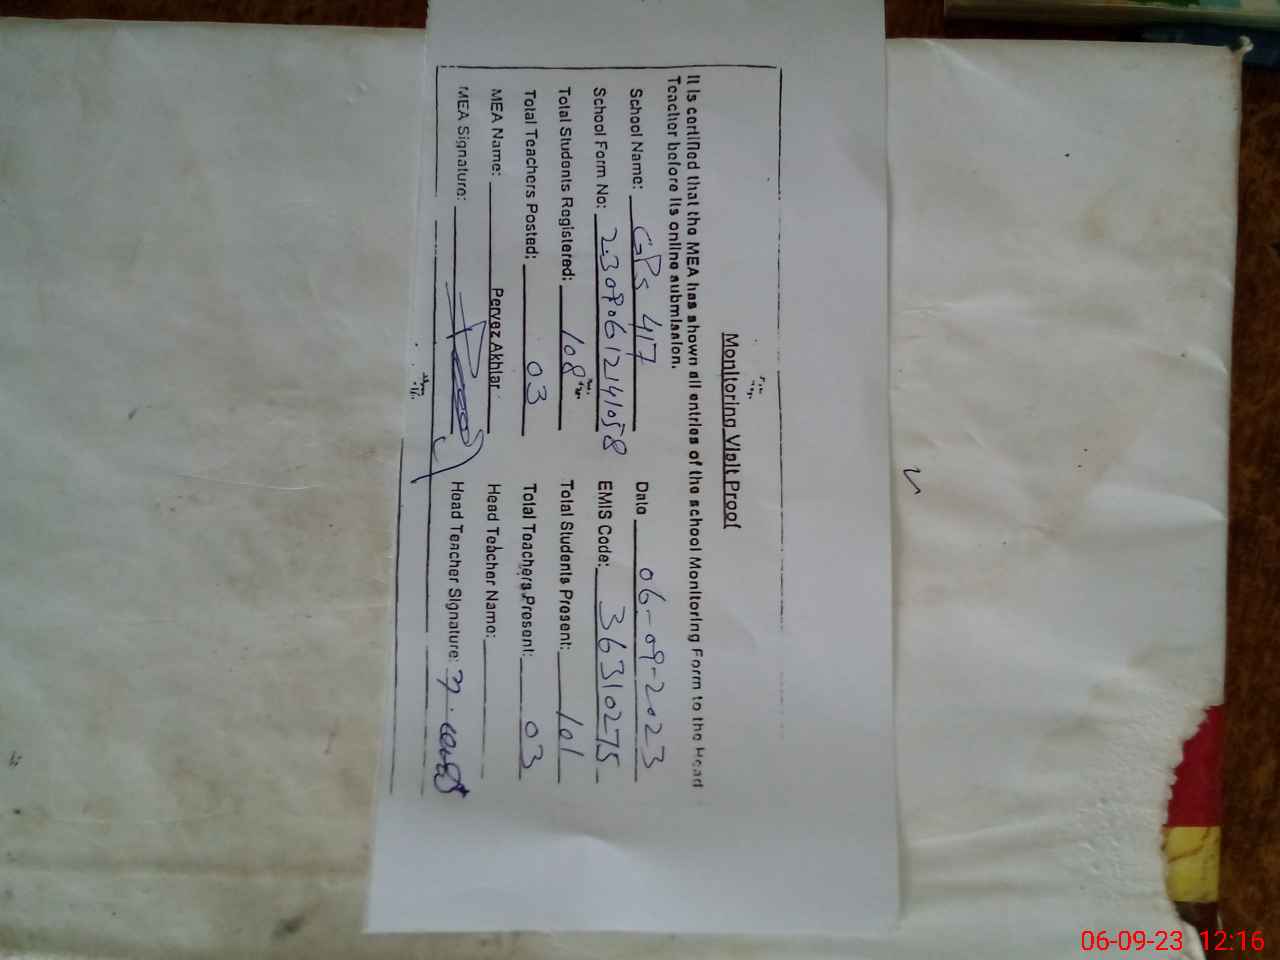 Monitoring Visit Proof
It is certified that the MEA has shown all entries of the school Monitoring Form to the Head
Teacher before its online submission.
School Name: GPS 417 Date 06-09-2023
School Form No: 23080612141058 EMIS Code: 36310275
Total Students Registered: 108 Total Students Present: 101
Total Teachers Posted: 03 Total Teachers Present: 03
MEA Name: Pervez Akhtar Head Teacher Name:
MEA Signature: Head Teacher Signature:
06-09-23 12:16